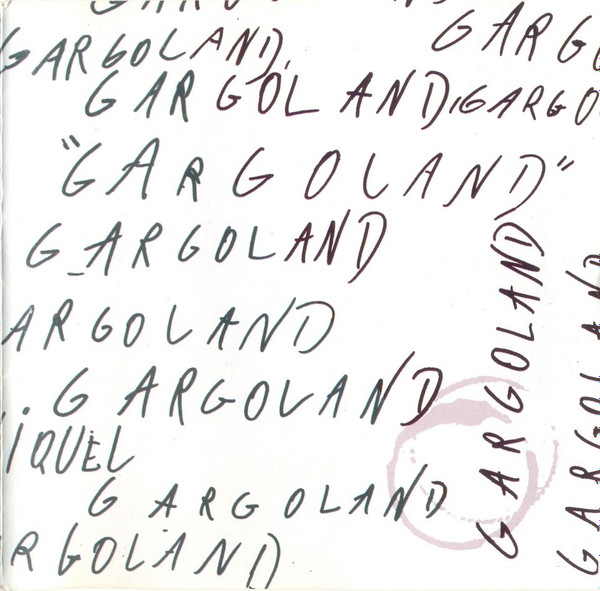 GARGOLAND,
GARGO
GARGOLAND, GARGO
"GARGOLAND"
G_ARGOLAND
ARGOLAND
. GARGOLAND
IQUEL
GARGOLAND
RGOLAND
GARGOLAND
GARGOLAND